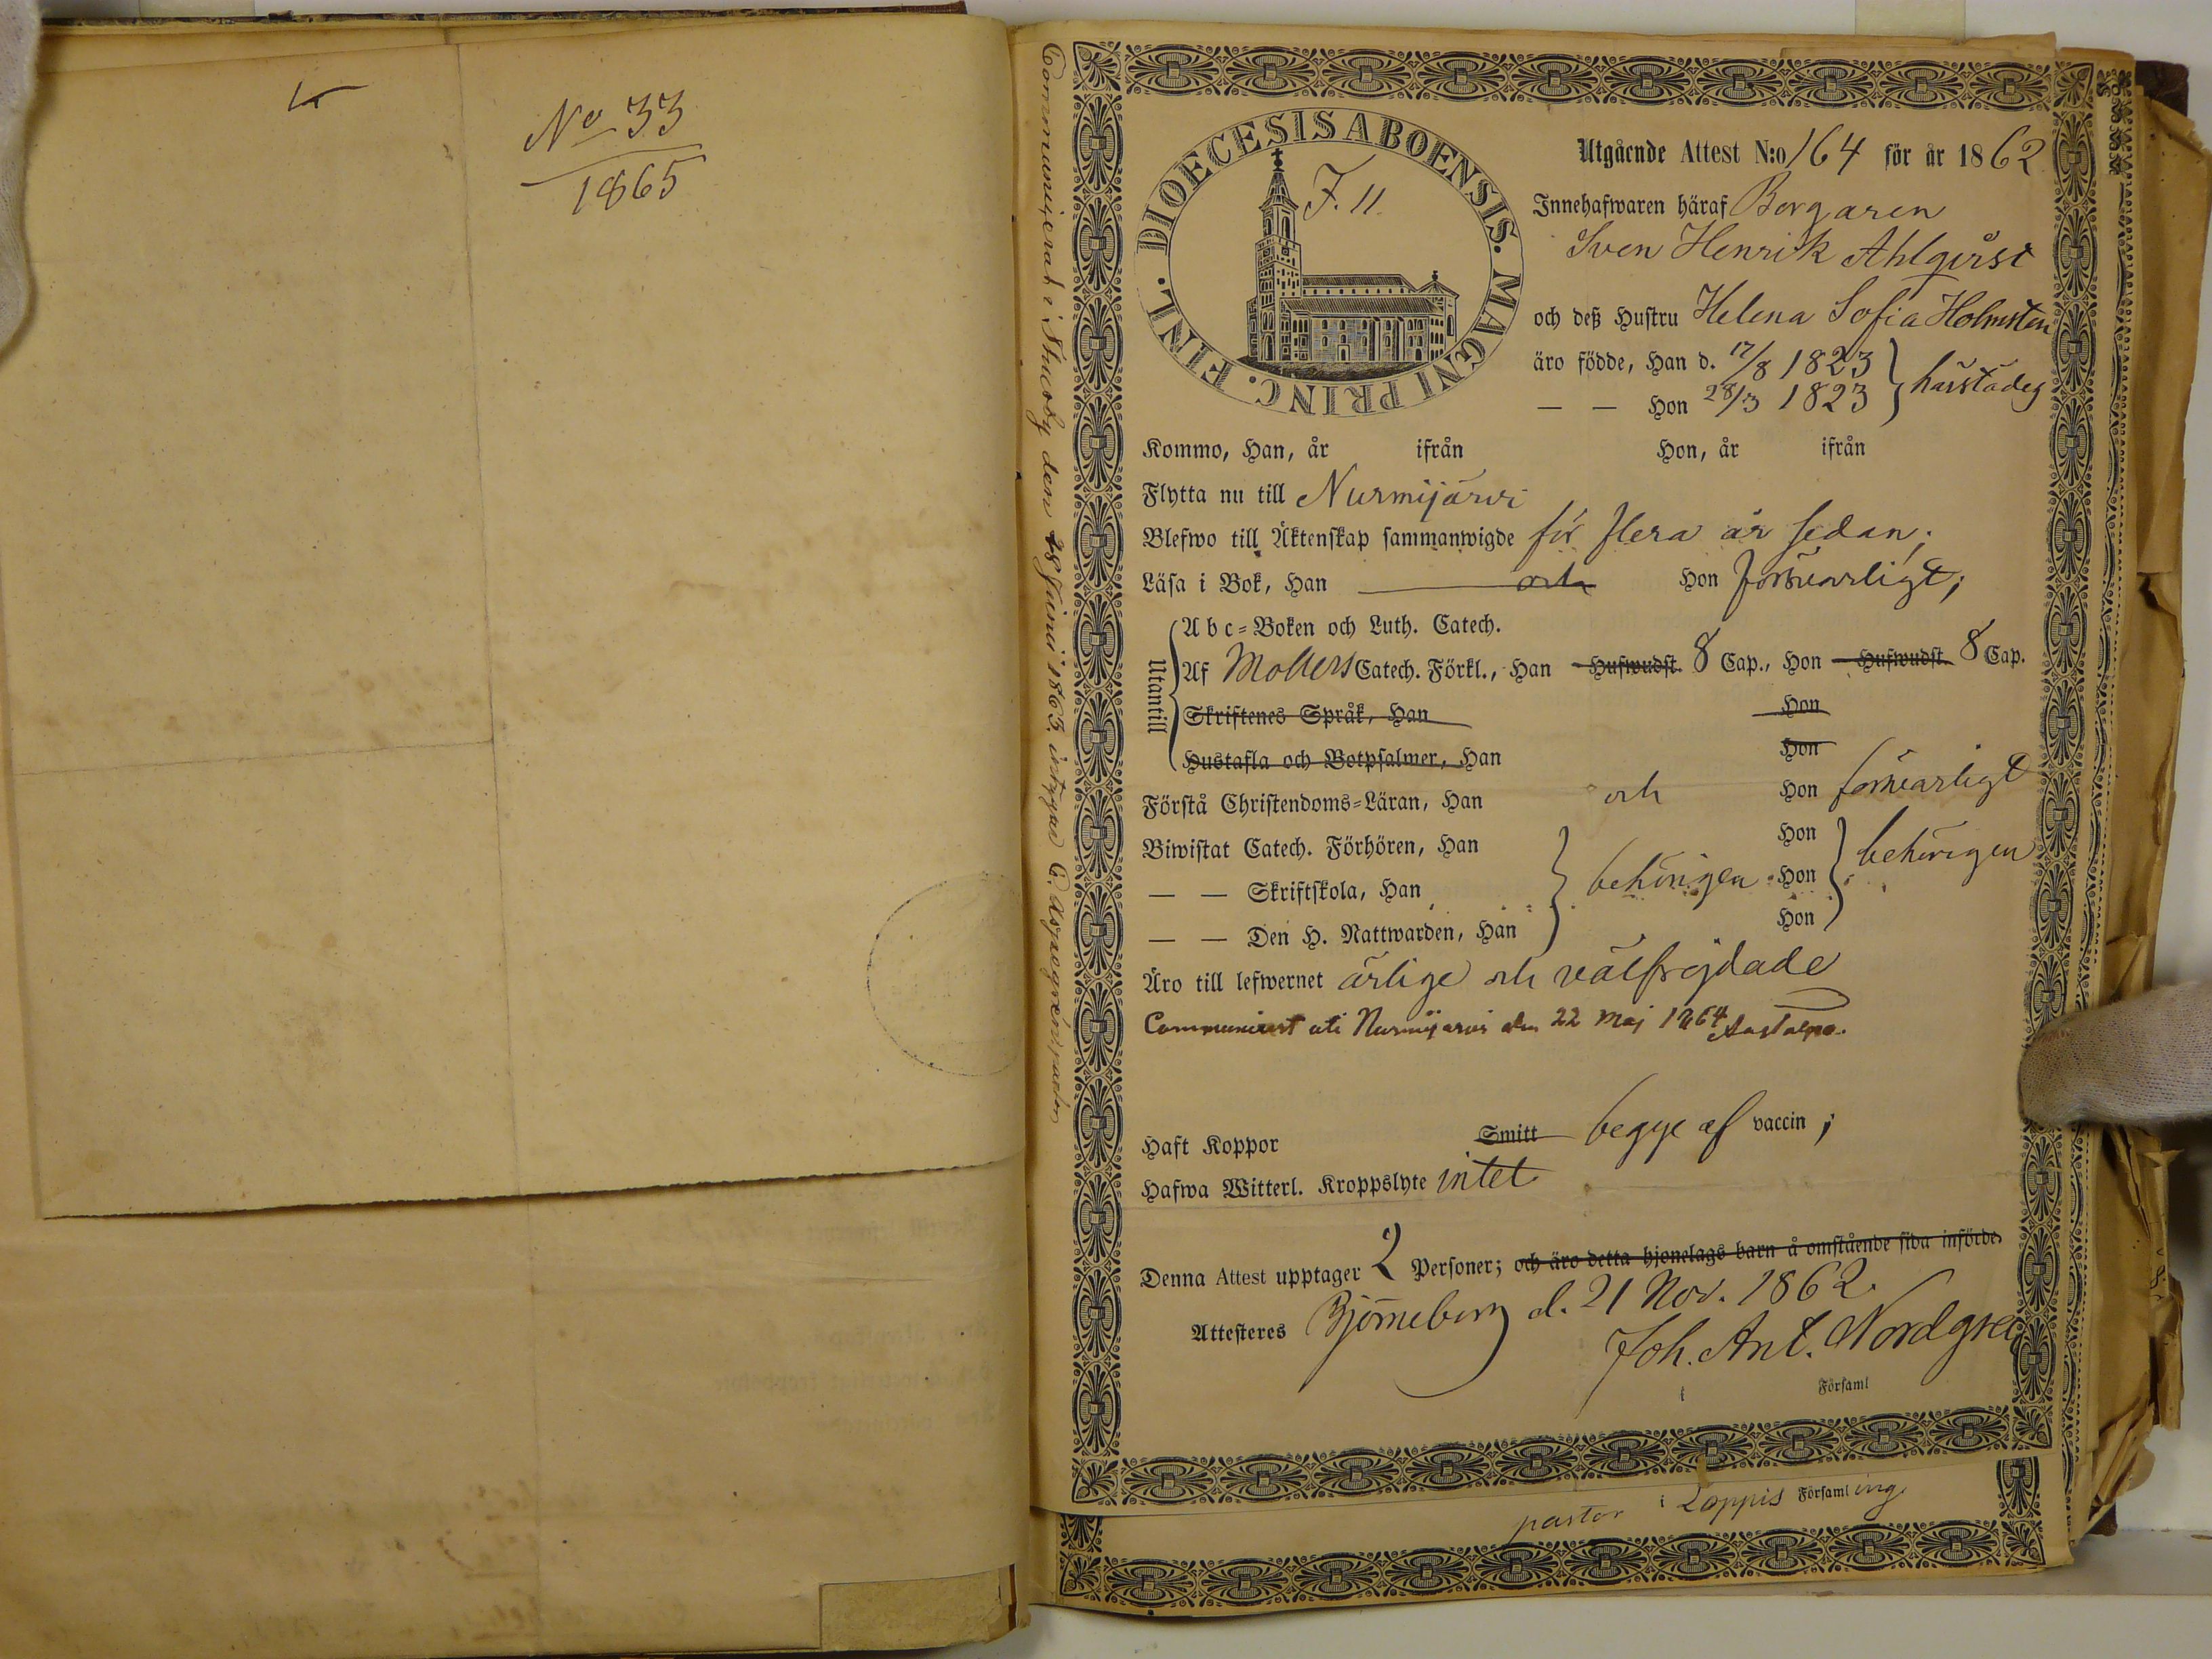 No 33
1865
DIOECESIS ABOENSIS. MAGNI PRINC. FINL.
F. 11.
Utgående Attest N:o 164 för år 1862
Innehafwaren häraf Borgaren
Sven Henrik Ahlqvist
och deß Hustru Helena Sofia Holmsten
äro födde, Han d. 17/8 1823
— — Hon 28/3 1823 } härstädes
Kommo, Han, år ifrån Hon, år ifrån
Flytta nu till Nurmijärvi
Blefwo till Äktenskap sammanwigde för flera år sedan;
Läsa i Bok, Han och Hon försvarligt;
Utantill
Abc=Boken och Luth. Catech.
Af Möllers Catech. Förkl., Han Hufwudst. 8 Cap., Hon Hufwudst. 8 Cap.
Skriftenes Språk, Han Hon
Hustafla och Botpsalmer, Han Hon
Förstå Christendoms=Läran, Han och Hon försvarligt
Biwistat Catech. Förhören, Han Hon
— — Skriftskola, Han behörigen Hon behörigen
— — Den H. Nattwarden, Han Hon
Äro till lefwernet ärlige och välfrejdade
Communicerat uti Nurmijärvi den 22 Maj 1864
Haft Koppor Smitt begge af vaccin;
Hafwa Witterl. Kroppslyte intet
Denna Attest upptager 2 Personer; och äro detta hjonelags barn å omstående sida införde.
Attesteres Björneborg d. 21 Nov. 1862.
Joh. Ant. Nordgren
i Församl
pastor i Loppis Församling
Communicerat i den 28 Juni 1863, intygar C.